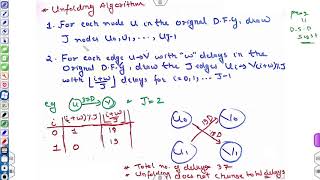 * Unfolding Algorithm
1. For each node U in the original D.F.G, draw
J node U0, U1, . . . , UJ-1
2. For each edge U→V with "w" delays in the
original D.F.G, draw the J edges Ui → V(i+w)%J
with ⌊i+w/J⌋ delays for i=0,1, . . . J-1
eg U → V * J=2
i (i+w)%J ⌊i+w/J⌋
0 1 18
1 0 19
U0 V0
U1 V1
* Total no. of delays = 37
* Unfolding does not change total delays